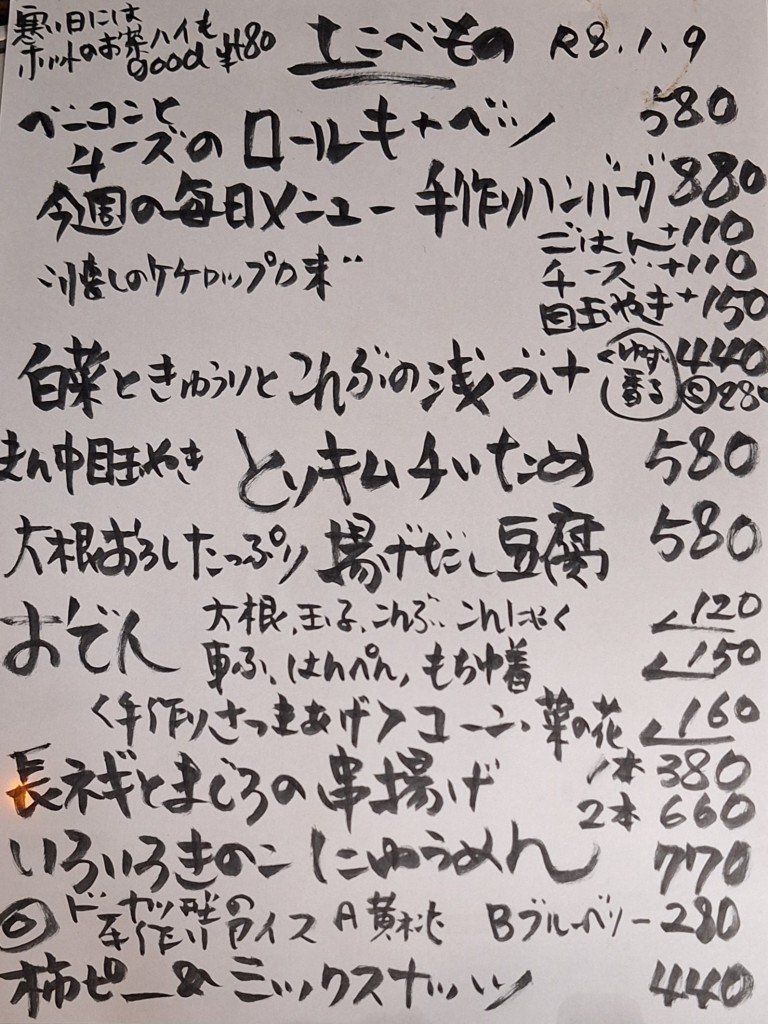 寒い日には
ホットのお茶ハイも
good ¥480
たべもの R8.1.9
ベーコンと
チーズの ロールキャベツ 580
今週の毎日メニュー 手作りハンバーグ 880
ごはん +110
チーズ +110
目玉やき +150
白菜ときゅうりとこんぶの浅づけ ゆず香る 440
280
まん中目玉やき とりキムチいため 580
大根おろしたっぷり 揚げだし豆腐 580
おでん 大根、玉子、こんぶ、こんにゃく 120
車ふ、はんぺん、もち巾着 150
〈手作りさつまあげ〉コーン、菜の花 160
長ネギとまぐろの串揚げ 1本 380
2本 660
いろいろきのこ にゅうめん 770
ドーナッツ型の
手作りアイス A黄桃 Bブルーベリー 280
柿ピー&ミックスナッツ 440